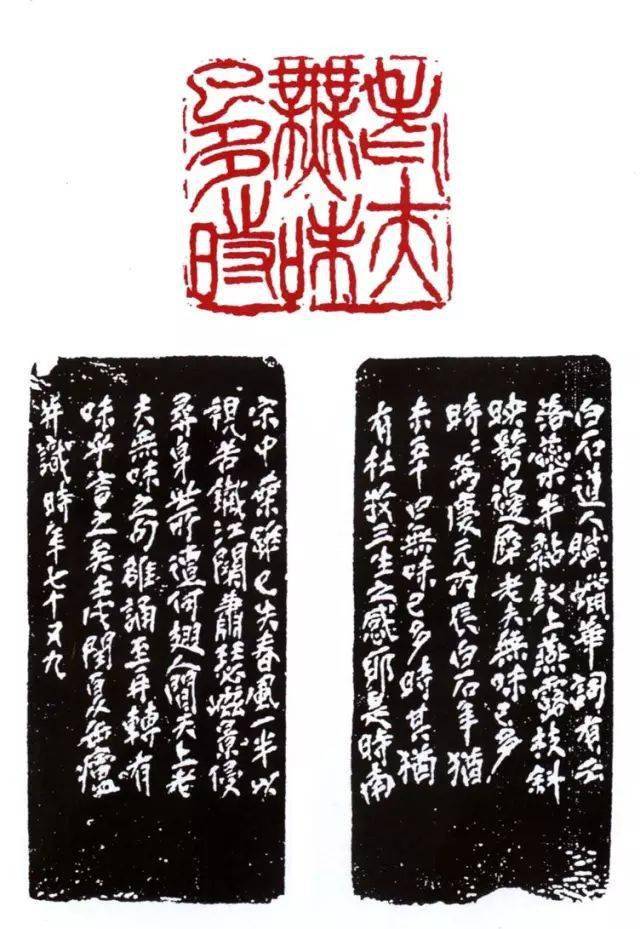 老夫
無味
已多時
白石道人賦蠟華詞有云
落蘂半黏釵上燕露枝斜
映鬢邊犀老夫無味已多
時〻為慶元丙辰白石年猶
未五十曰無味已多時其猶
有杜牧三生之感耶是時南
宋中葉雖已失春風一半以
視苦鐵江關蕭瑟崦景侵
尋身世所遭何翅人間天上老
夫無味之句雖誦至再轉有
味乎言之矣壬戌閏夏缶廬
并識時年七十又九